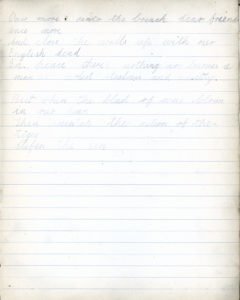 Once more unto the breach dear friends
once more
And close the walls up with our
English dead
In peace there nothing so becomes a
man and
But when the blast of war blows
in our ears
Then imitate the action of the
tiger
stiffen the